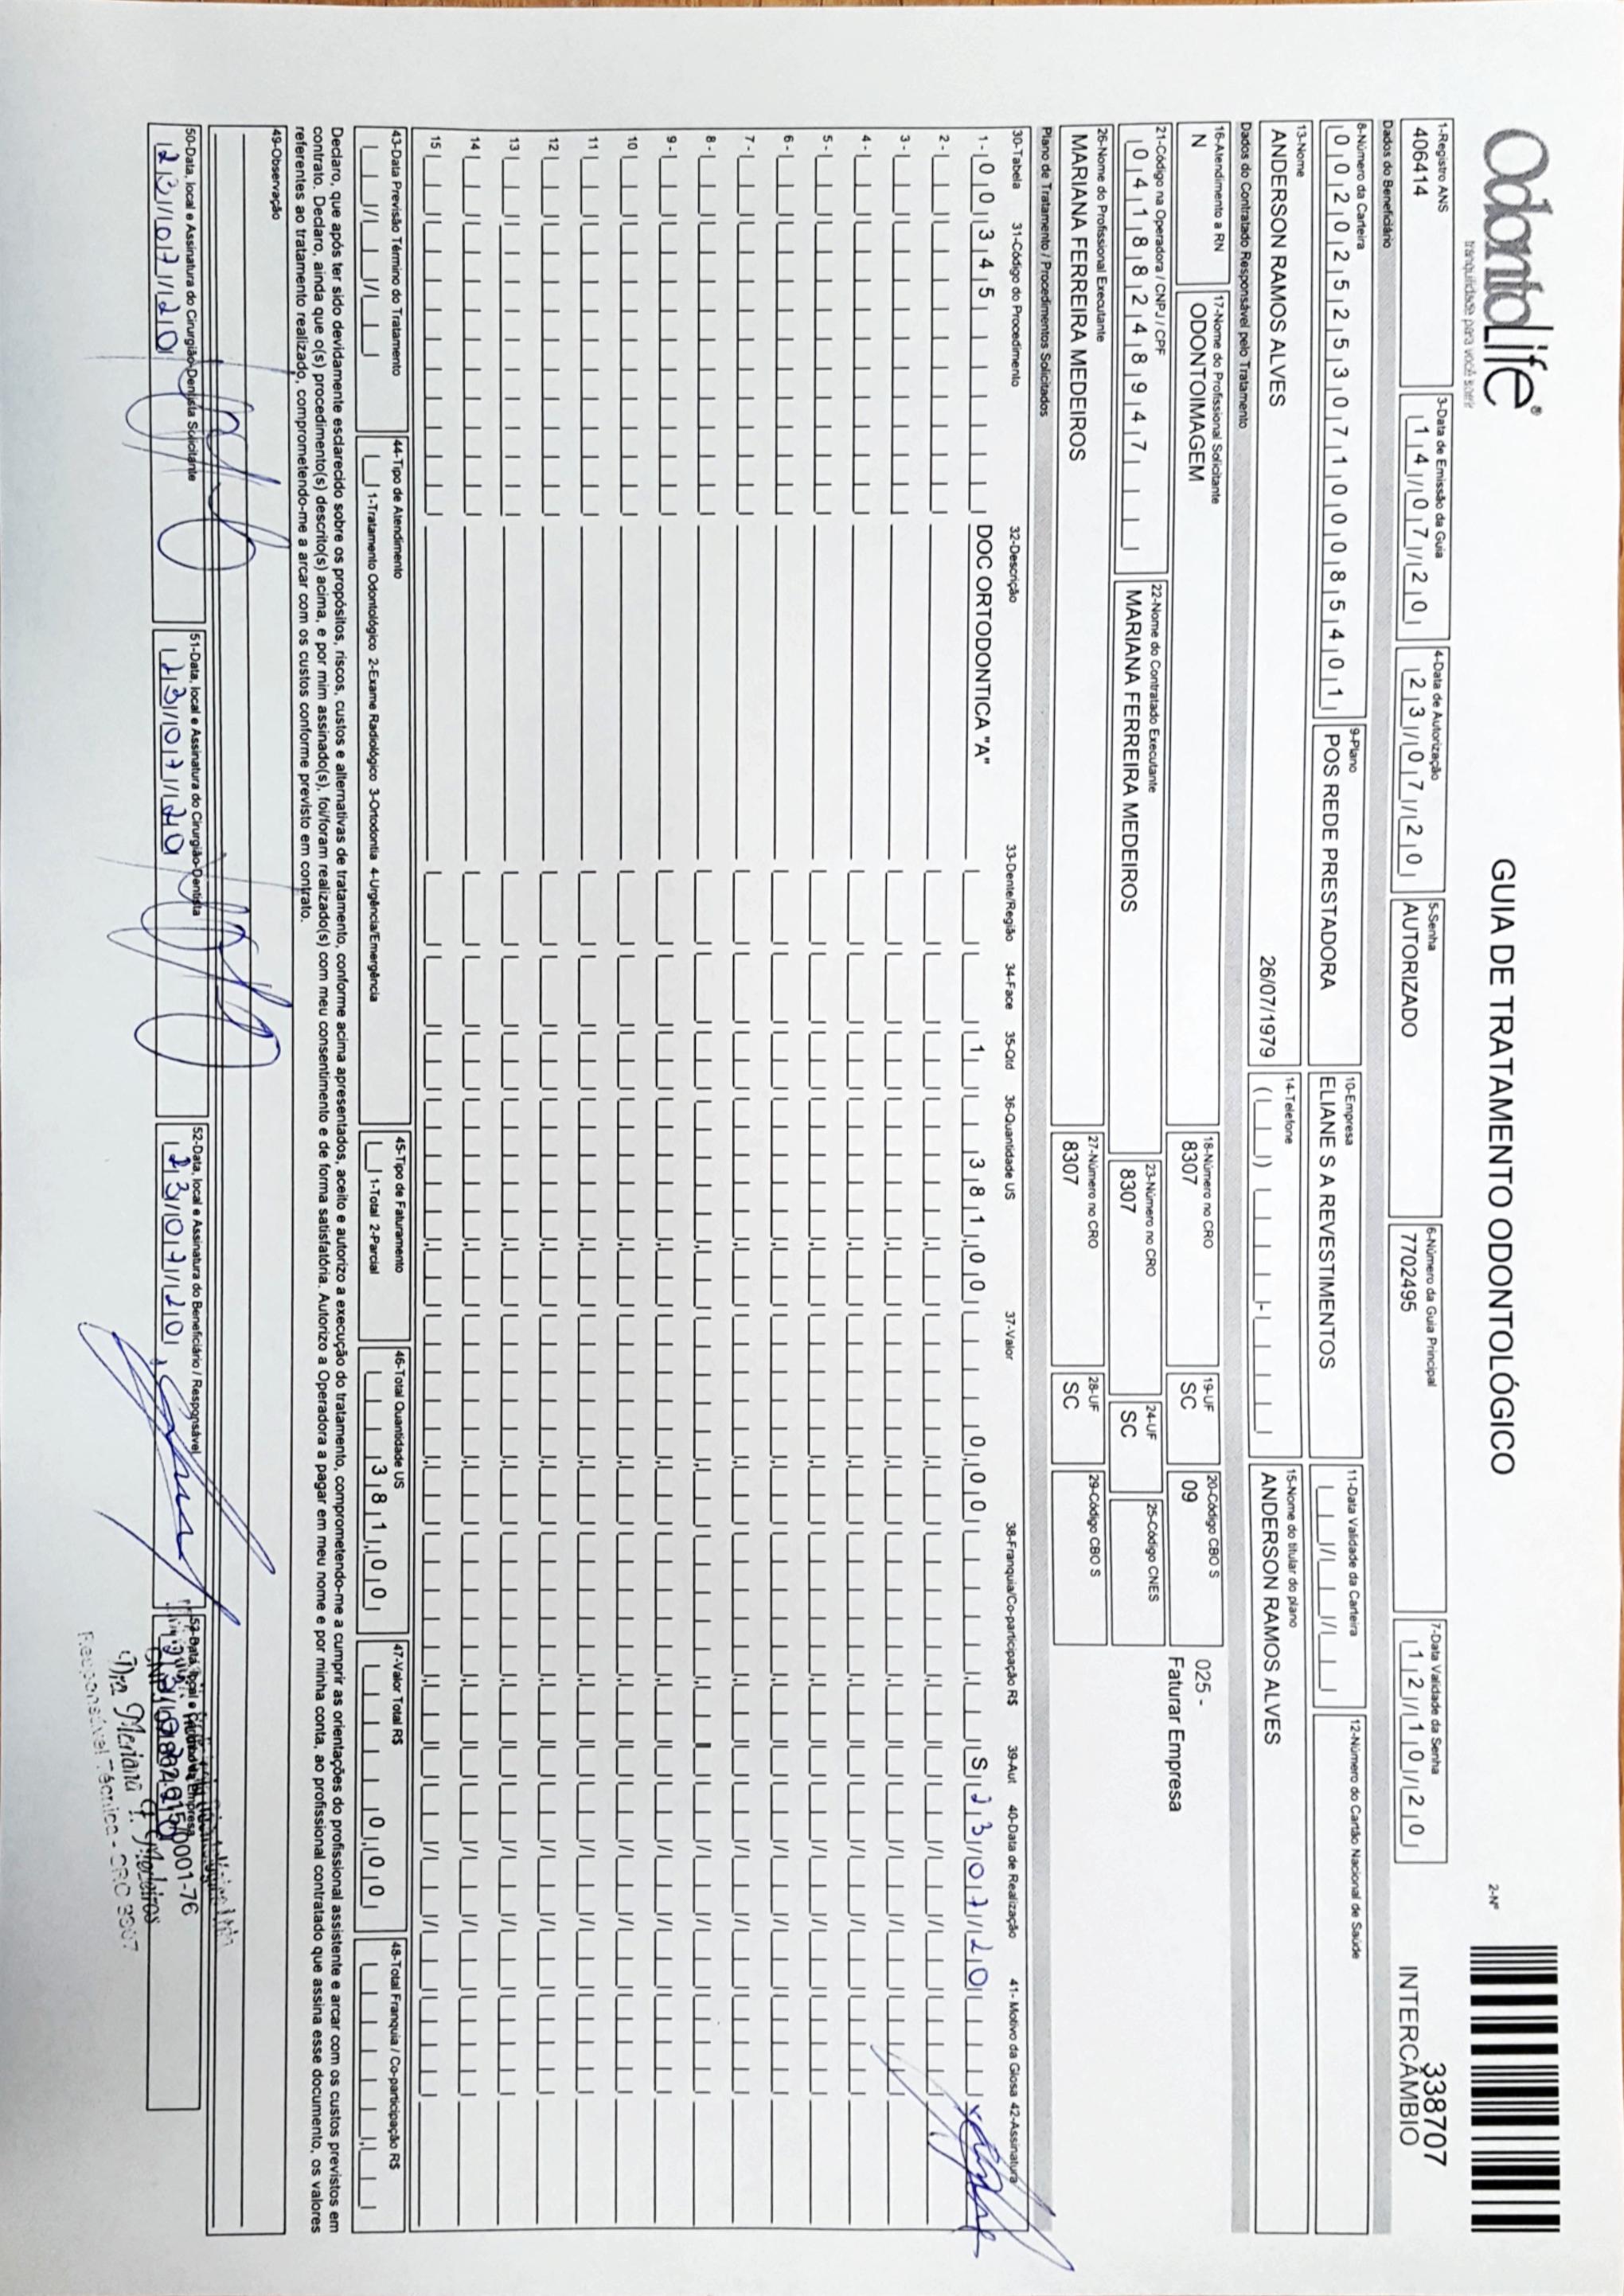 OdontoLife®
tranquilidade para você sorrir
GUIA DE TRATAMENTO ODONTOLÓGICO
2-Nº
338707
INTERCÂMBIO
1-Registro ANS 3-Data de Emissão da Guia 4-Data de Autorização 5-Senha 6-Número da Guia Principal 7-Data Validade da Senha
406414 14/07/20 23/07/20 AUTORIZADO 7702495 12/10/20
Dados do Beneficiário
8-Número da Carteira 9-Plano 10-Empresa 11-Data Validade da Carteira 12-Número do Cartão Nacional de Saúde
00202525307100085401 POS REDE PRESTADORA ELIANE S A REVESTIMENTOS
13-Nome 14-Telefone 15-Nome do titular do plano
ANDERSON RAMOS ALVES 26/07/1979 ANDERSON RAMOS ALVES
Dados do Contratado Responsável pelo Tratamento
16-Atendimento a RN 17-Nome do Profissional Solicitante 18-Número no CRO 19-UF 20-Código CBO S
N ODONTOIMAGEM 8307 SC 09
025 -
Faturar Empresa
21-Código na Operadora / CNPJ / CPF 22-Nome do Contratado Executante 23-Número no CRO 24-UF 25-Código CNES
04188248947 MARIANA FERREIRA MEDEIROS 8307 SC
26-Nome do Profissional Executante 27-Número no CRO 28-UF 29-Código CBO S
MARIANA FERREIRA MEDEIROS 8307 SC
Plano de Tratamento / Procedimentos Solicitados
30-Tabela 31-Código do Procedimento 32-Descrição 33-Dente/Região 34-Face 35-Qtd 36-Quantidade US 37-Valor 38-Franquia/Co-participação R$ 39-Aut 40-Data de Realização 41- Motivo da Glosa 42-Assinatura
1 - 00 345 DOC ORTODONTICA "A" 1 381,00 0,00 S 23/07/20
2 -
3 -
4 -
5 -
6 -
7 -
8 -
9 -
10
11
12
13
14
15
43-Data Previsão Término do Tratamento 44-Tipo de Atendimento 45-Tipo de Faturamento 46-Total Quantidade US 47-Valor Total R$ 48-Total Franquia / Co-participação R$
1-Tratamento Odontológico 2-Exame Radiológico 3-Ortodontia 4-Urgência/Emergência 1-Total 2-Parcial 381,00 0,00
Declaro, que após ter sido devidamente esclarecido sobre os propósitos, riscos, custos e alternativas de tratamento, conforme acima apresentados, aceito e autorizo a execução do tratamento, comprometendo-me a cumprir as orientações do profissional assistente e arcar com os custos previstos em
contrato. Declaro, ainda que o(s) procedimento(s) descrito(s) acima, e por mim assinado(s), foi/foram realizado(s) com meu consentimento e de forma satisfatória. Autorizo a Operadora a pagar em meu nome e por minha conta, ao profissional contratado que assina esse documento, os valores
referentes ao tratamento realizado, comprometendo-me a arcar com os custos conforme previsto em contrato.
49-Observação
50-Data, local e Assinatura do Cirurgião-Dentista Solicitante 51-Data, local e Assinatura do Cirurgião-Dentista 52-Data, local e Assinatura do Beneficiário / Responsável 53-Data, local e Carimbo da Empresa
23/07/20 23/07/20 23/07/20
Dra Mariana F. Medeiros
Responsável Técnica - CRO 8307